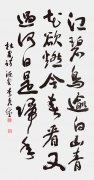 江碧鳥逾白山青
花欲燃今春看又
過何日是歸年
杜甫詩